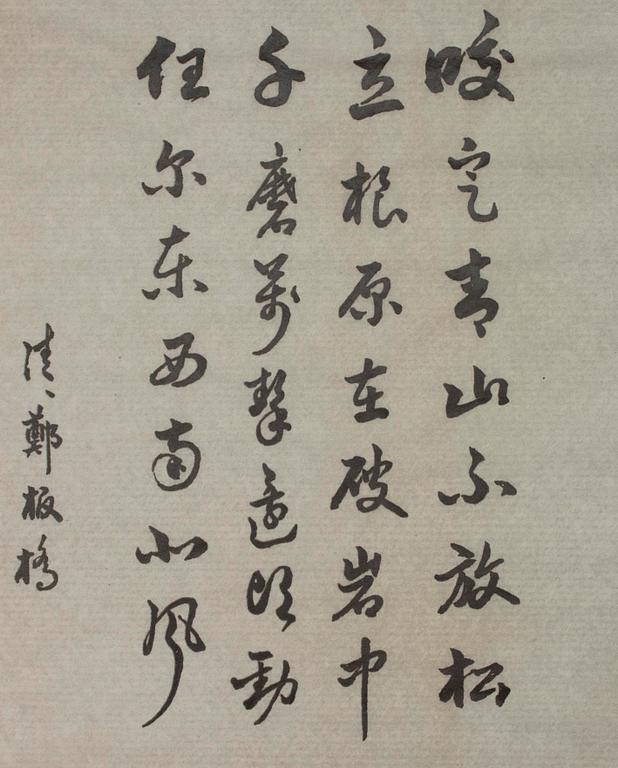 咬定青山不放松
立根原在破岩中
千磨萬擊還堅勁
任尔东西南北風
清、鄭板橋